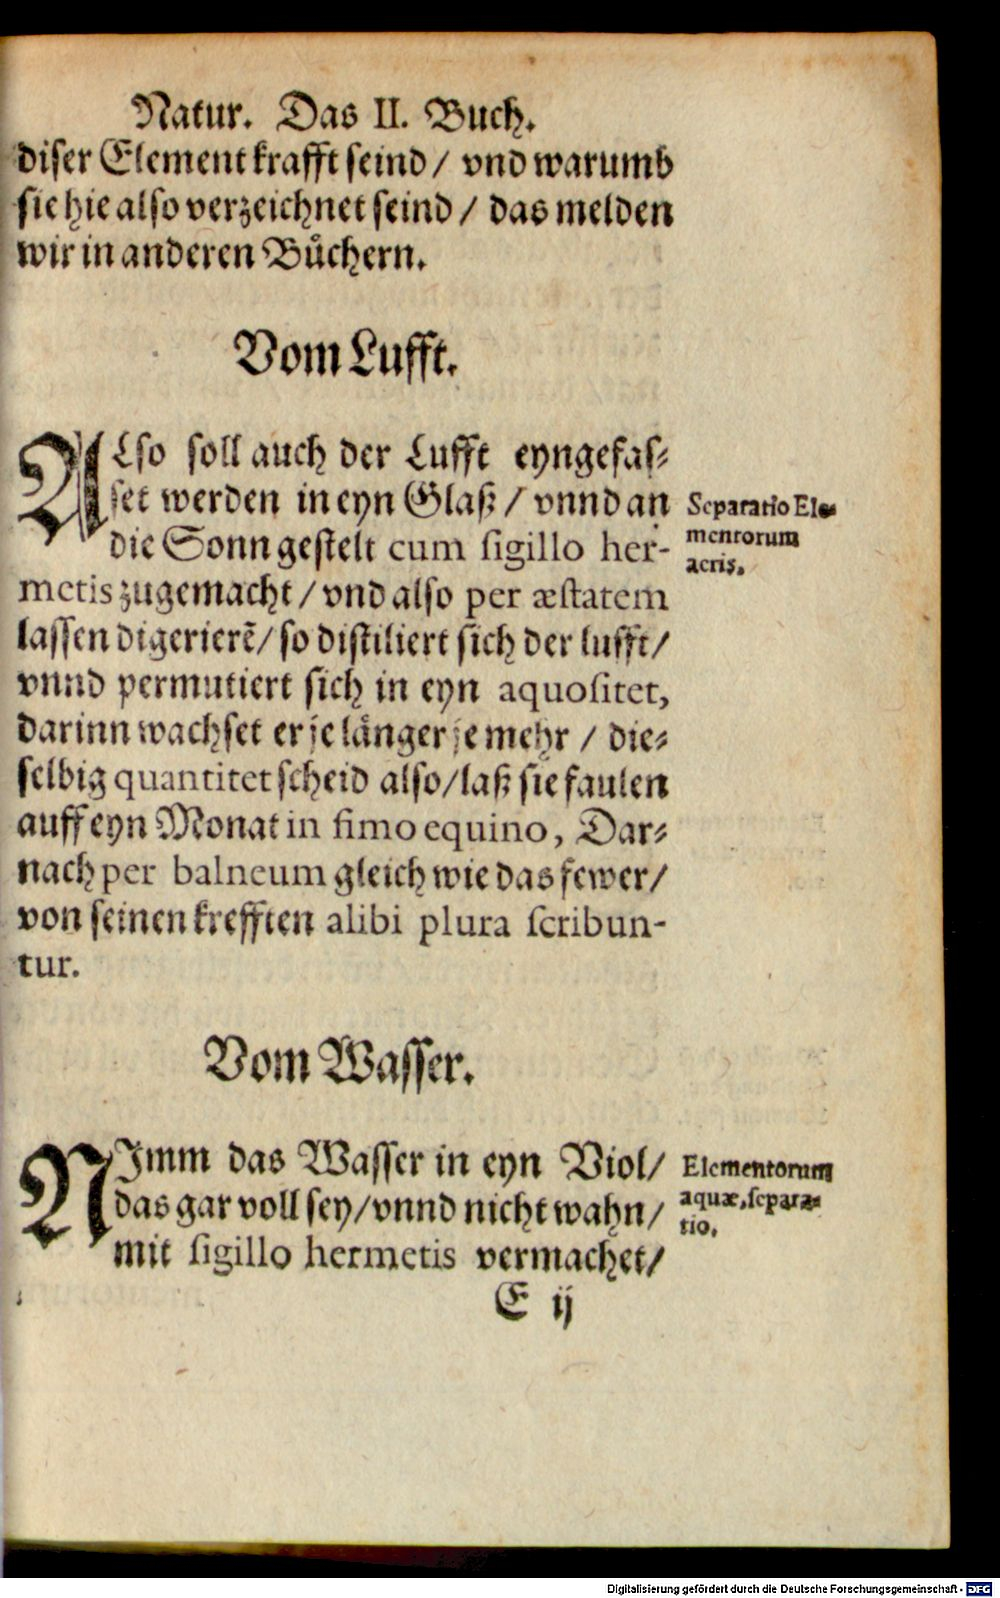 Natur. Das II. Buch.
diser Element krafft seind / vnd warumb
sie hie also verzeichnet seind / das melden
wir in anderen Bůchern.
Vom Lufft.
ALso soll auch der Lufft eyngefas⸗
set werden in eyn Glaß / vnnd an
die Sonn gestelt cum sigillo her-
metis zugemacht / vnd also per æstatem
lassen digerierẽ / so distiliert sich der lufft /
vnnd permutiert sich in eyn aquositet,
darinn wachset er je länger je mehr / die⸗
selbig quantitet scheid also / laß sie faulen
auff eyn Monat in fimo equino, Dar⸗
nach per balneum gleich wie das fewer /
von seinen krefften alibi plura scribun-
tur.
Separatio Ele⸗
mentorum
aeris.
Vom Wasser.
NImm das Wasser in eyn Viol /
das gar voll sey / vnnd nicht wahn /
mit sigillo hermetis vermachet /
Elementorum
aquæ, separa⸗
tio.
E ij
Digitalisierung gefördert durch die Deutsche Forschungsgemeinschaft - DFG